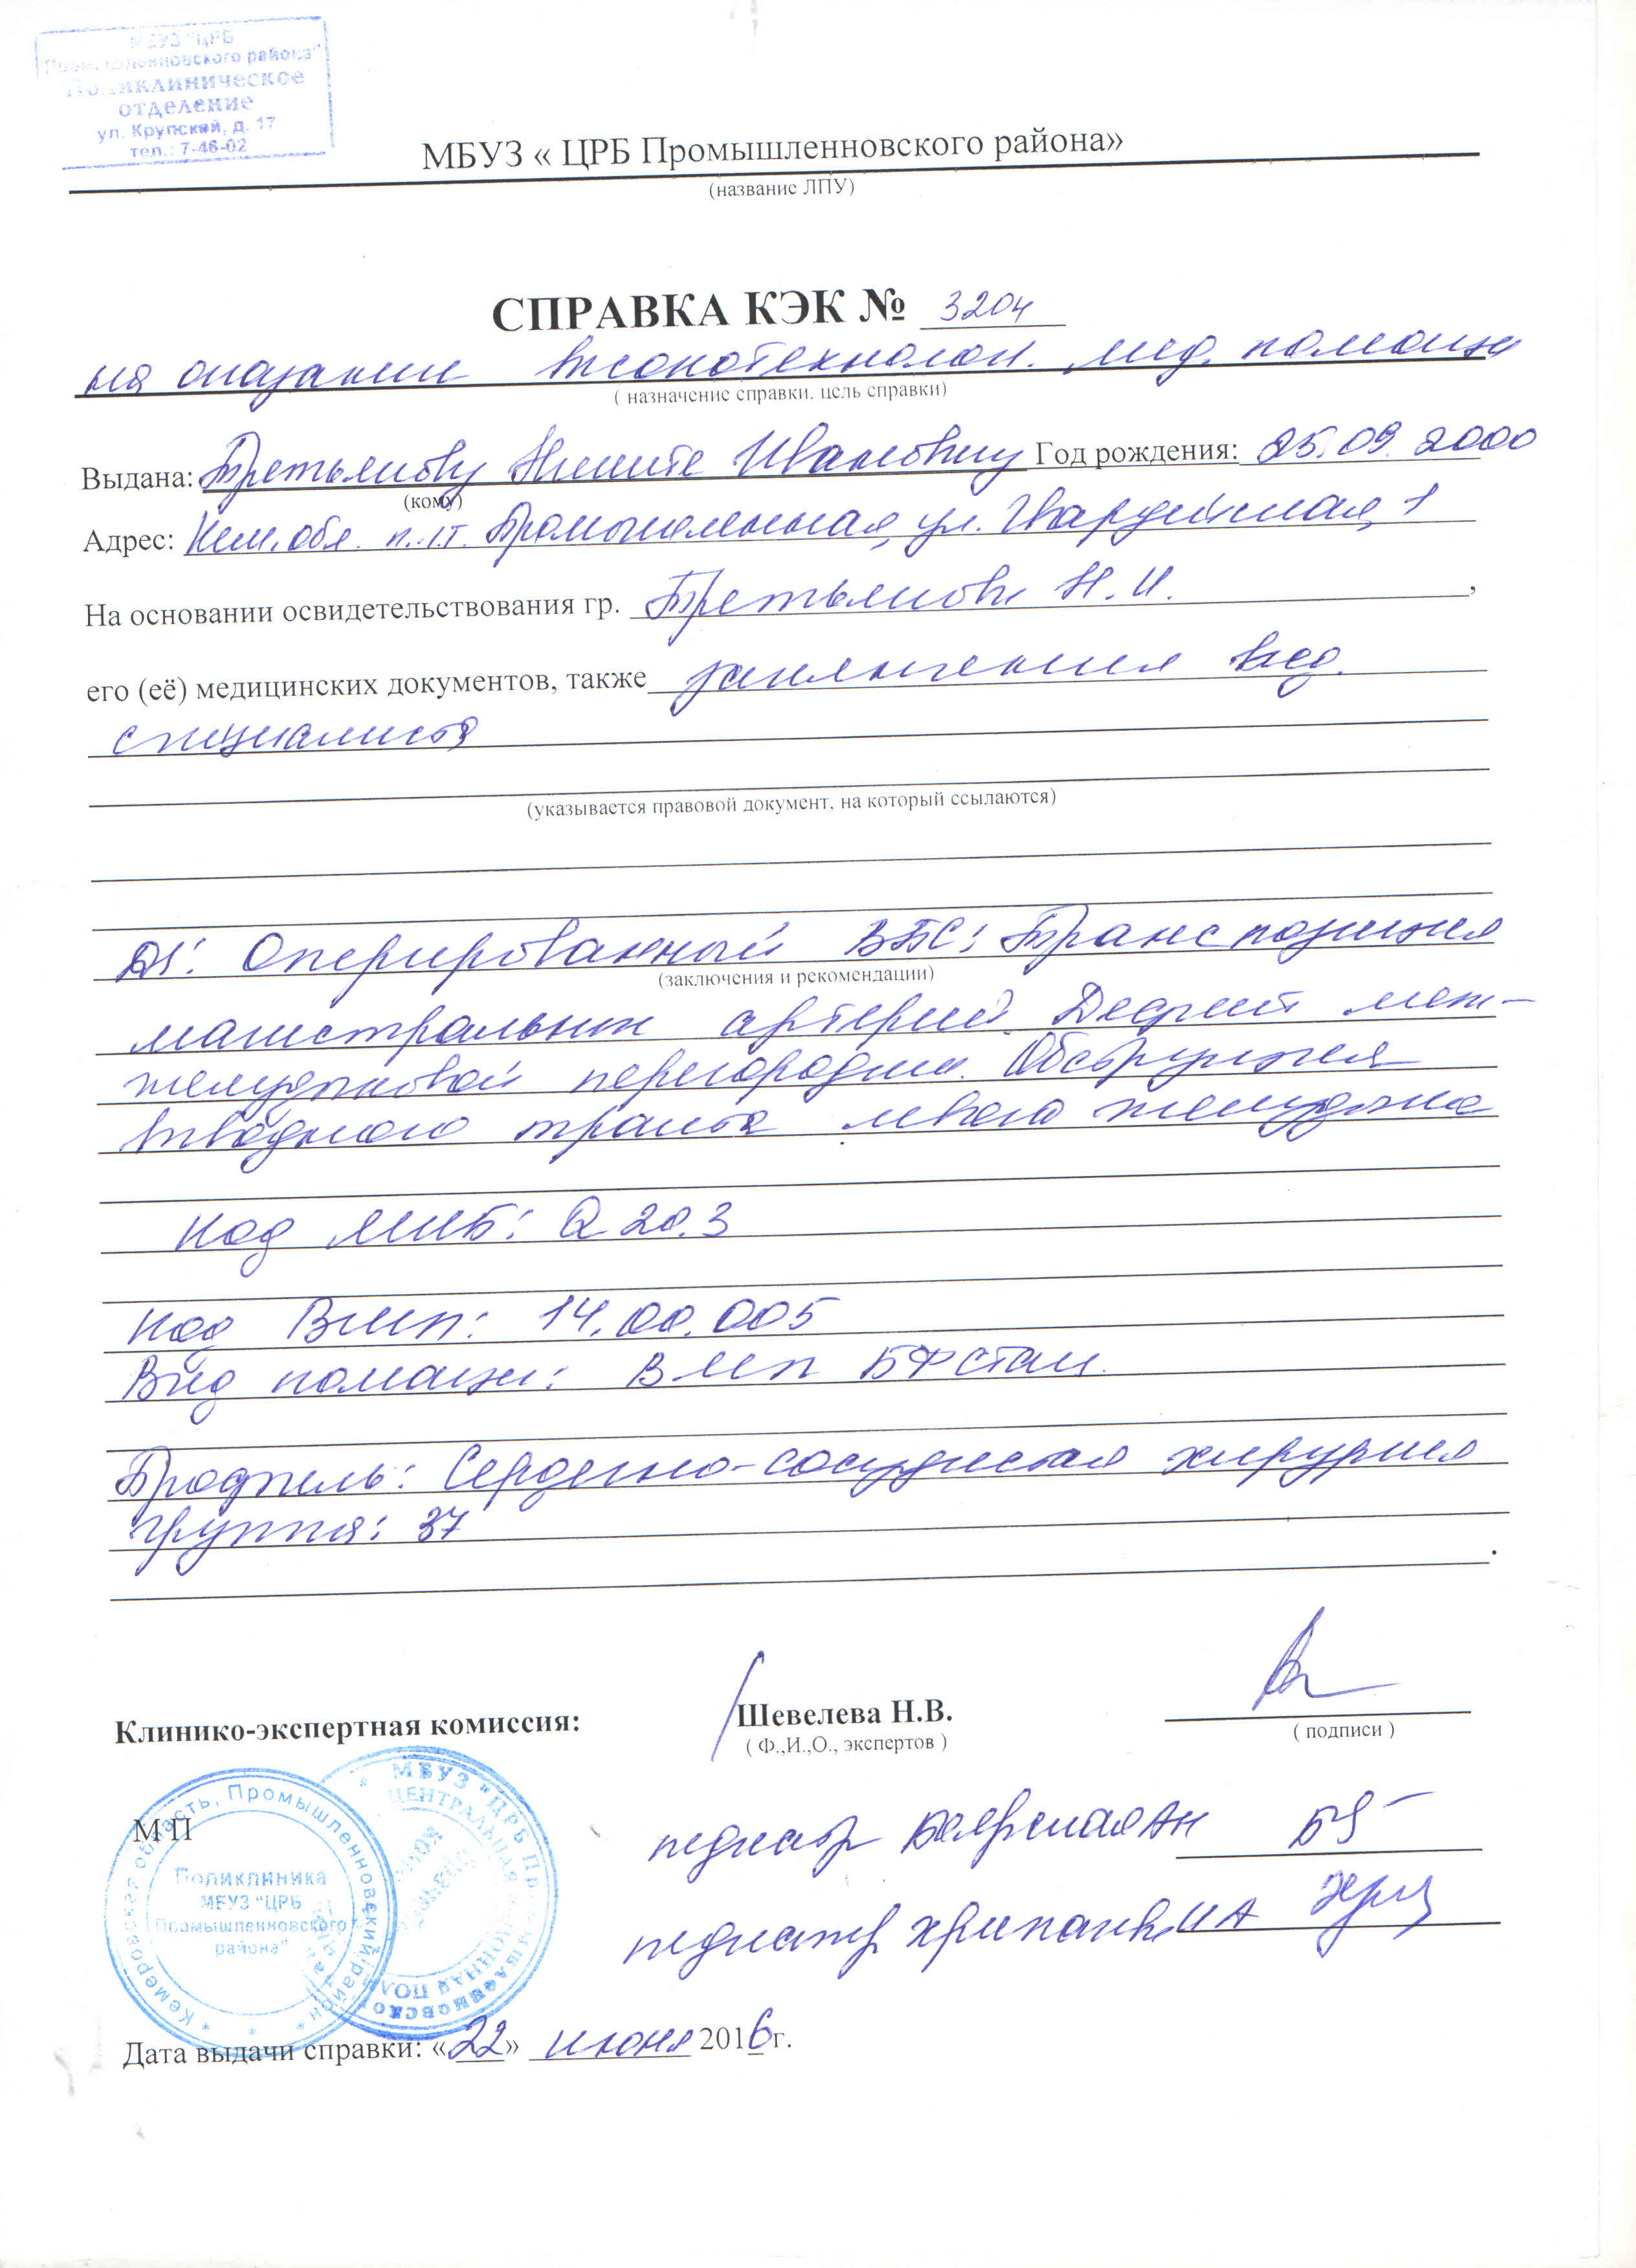 МБУЗ "ЦРБ
Промышленновского района"
Поликлиническое
отделение
ул. Крупской, д. 17
тел.: 7-46-02
МБУЗ « ЦРБ Промышленновского района»
(название ЛПУ)
СПРАВКА КЭК № 3204
на оказание высокотехнологич. мед. помощи
( назначение справки, цель справки)
Выдана: Третьякову Никите Ивановичу Год рождения: 25.09.2000
(кому)
Адрес: Кем. обл. п.г.т. Промышленная, ул. Гвардейская, 1
На основании освидетельствования гр. Третьякова Н.И.,
его (её) медицинских документов, также заключения вед.
специалиста
(указывается правовой документ, на который ссылаются)
Ds: Оперированный ВПС: Транспозиция
(заключения и рекомендации)
магистральных артерий. Дефект меж-
желудочковой перегородки. Обструкция
выводного тракта левого желудочка
Код МКБ: Q 20.3
Код ВМП: 14.00.005
Вид помощи: ВМП БФ стац.
Профиль: Сердечно-сосудистая хирургия
группа: 37
Клинико-экспертная комиссия: Шевелева Н.В.
( Ф.,И.,О., экспертов ) ( подписи )
М П
педиатр Боярская АН
педиатр ИА
Кемеровская область, Промышленновский район
Поликлиника
МБУЗ "ЦРБ
Промышленновского
района"
МБУЗ "ЦРБ Промышленновского
ЦЕНТРАЛЬНАЯ РАЙОННАЯ ПОЛ
Дата выдачи справки: «22» июня 2016 г.